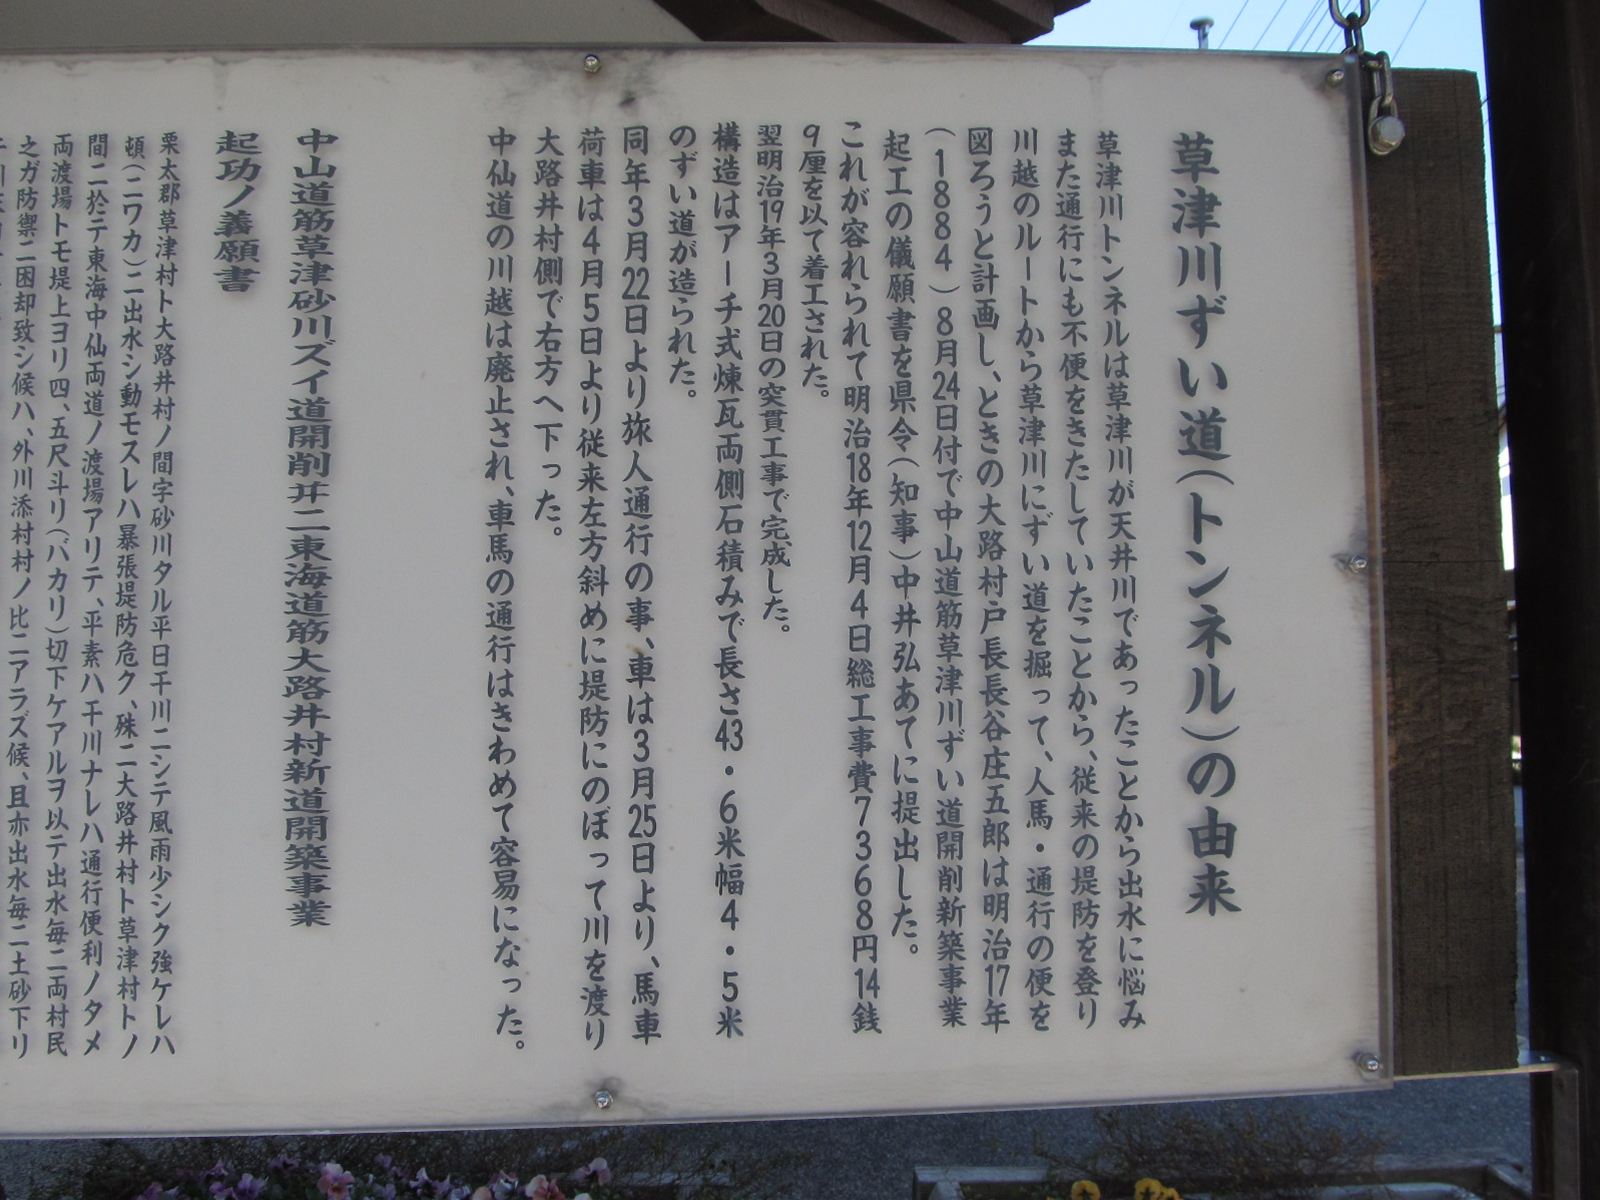 草津川ずい道(トンネル)の由来
草津川トンネルは草津川が天井川であったことから出水に悩み
また通行にも不便をきたしていたことから、従来の堤防を登り
川越のルートから草津川にずい道を掘って、人馬・通行の便を
図ろうと計画し、ときの大路村戸長長谷庄五郎は明治17年
(1884)8月24日付で中山道筋草津川ずい道開削新築事業
起工の儀願書を県令(知事)中井弘あてに提出した。
これが容れられて明治18年12月4日総工事費7368円14銭
9厘を以て着工された。
翌明治19年3月20日の突貫工事で完成した。
構造はアーチ式煉瓦両側石積みで長さ43・6米幅4・5米
のずい道が造られた。
同年3月22日より旅人通行の事、車は3月25日より、馬車
荷車は4月5日より従来左方斜めに堤防にのぼって川を渡り
大路井村側で右方へ下った。
中仙道の川越は廃止され、車馬の通行はきわめて容易になった。
中山道筋草津砂川ズイ道開削并ニ東海道筋大路井村新道開築事業
起功ノ義願書
栗太郡草津村ト大路井村ノ間字砂川タル平日干川ニシテ風雨少シク強ケレハ
頓(ニワカ)ニ出水シ動モスレハ暴張堤防危ク、殊ニ大路井村ト草津村トノ
間ニ於テ東海中仙両道ノ渡場アリテ、平素ハ干川ナレハ通行便利ノタメ
両渡場トモ堤上ヨリ四、五尺斗リ(バカリ)切下ケアルヲ以テ出水毎ニ両村民
之ガ防禦ニ困却致シ候ハ、外川添村村ノ比ニアラズ候、且亦出水毎ニ土砂下リ